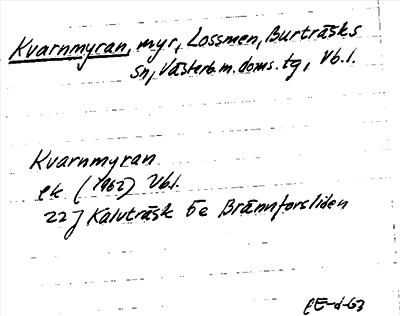 Kvarnmyran, myr, Lossmen, Burträsks
sn, Västerb.m.doms.tg, Vb.l.
Kvarnmyran
ek (1962) Vb.l.
22J Kalvträsk 5e Brännforsliden